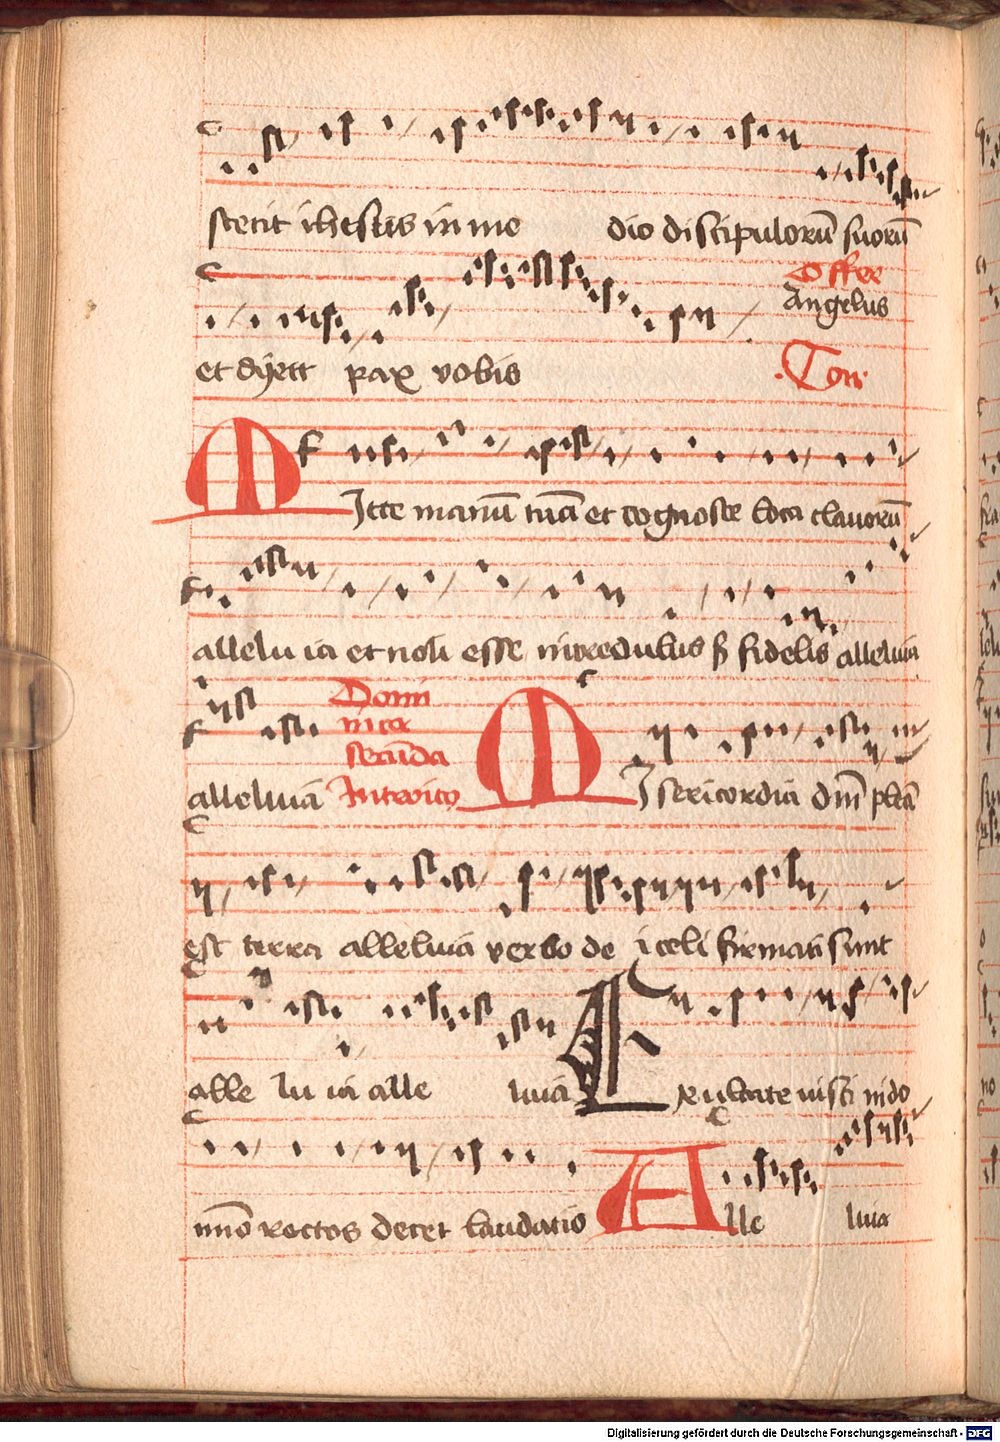 stetit ihesus in me dio discipulorū suorū
Offer
Angelus
et dyett pax vobis
Con
MItte manū tuā et cognosce loca clavorū
allelu ia et noli esse incredulus fidelis alleluia
alleluia
Domi
nica
secūda
Introito
MIsericordia dm̄ plēa
est terra alleluia verbo de i celi firmati sunt
alle lu ia alle luia Exultate iusti in do
mīno rectos decet laudatio Alle luia
Digitalisierung gefördert durch die Deutsche Forschungsgemeinschaft - DFG